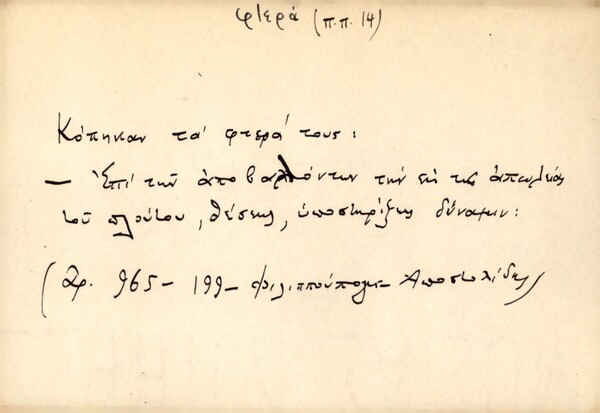 φτερά (π.π. 14)
Κόπηκαν τα' φτερά τους:
— Ἐπί τῶν ἀποβαλλόντων τήν ἐκ τῆς ἀπωλείας
τοῦ πλούτου, θέσης, ὑποστηρίξης δύναμιν:
(Ἀρ. 965 - 199 - Φιλιππούπολη - Ἀποστολίδης)